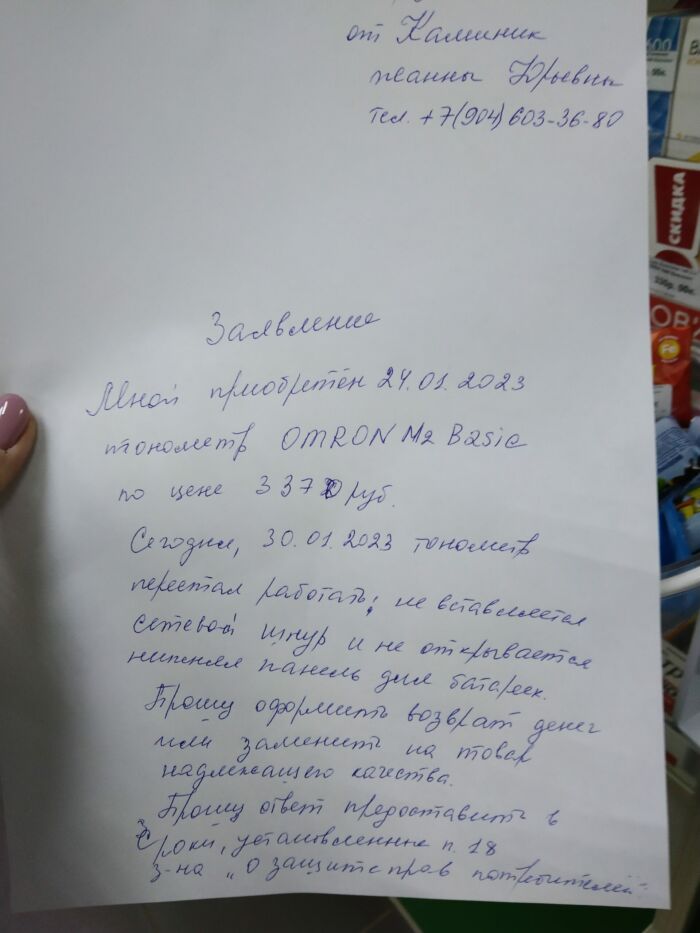 от Калиник
жанны Юрьевны
тел. +7(904) 603-36-80
Заявление
Мной приобретён 24.01.2023
тонометр OMRON M2 Basic
по цене 3370 руб.
Сегодня, 30.01.2023 тонометр
перестал работать: не вставляется
сетевой шнур и не открывается
нижняя панель для батареек.
Прошу оформить возврат денег
или заменить на товар
надлежащего качества.
Прошу ответ предоставить в
сроки, установленные п. 18
з-на "О защите прав потребителей"
СКИДКА